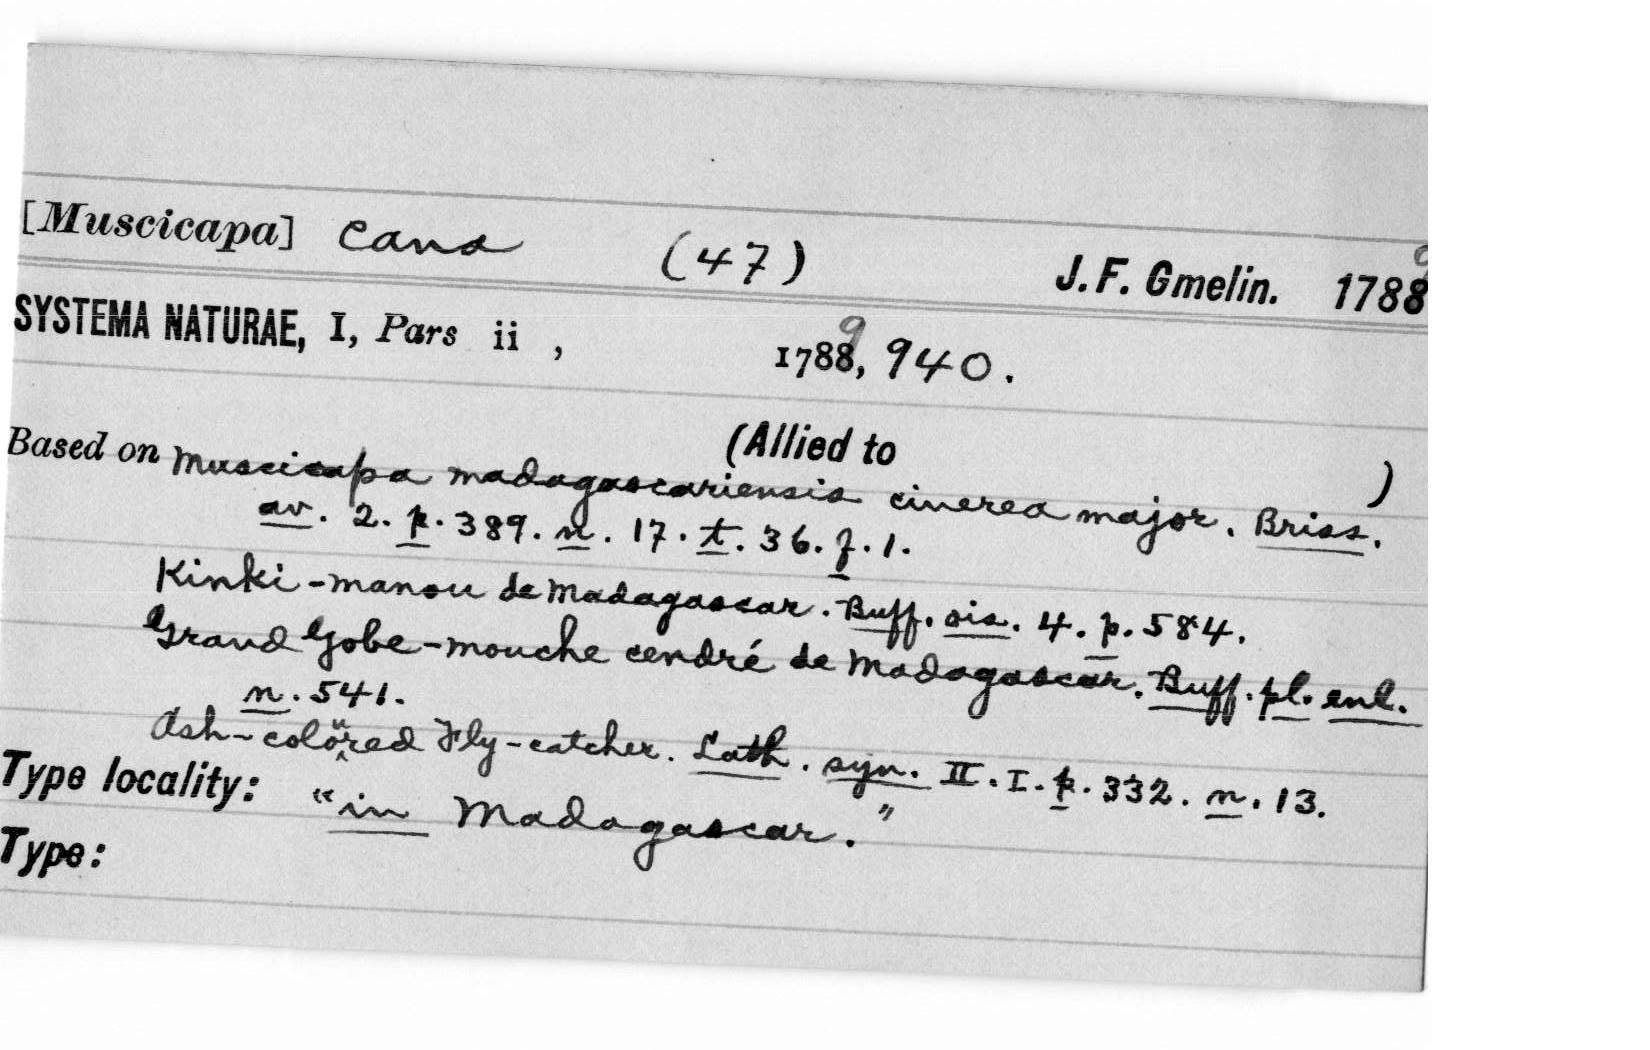 [Muscicapa] cana (47) J. F. Gmelin. 1788 9
SYSTEMA NATURAE, I, Pars ii , 1788 9, 940.
(Allied to )
Based on Muscicapa madagascariensis cinerea major. Briss.
av. 2. p. 389. n. 17. t. 36. f. 1.
Kinki-manou de Madagascar. Buff. ois. 4. p. 584.
Grand Gobe-mouche cendré de Madagascar. Buff. pl. enl.
n. 541.
Ash-coloured Fly-catcher. Lath. syn. II. I. p. 332. n. 13.
Type locality: "in Madagascar."
Type: